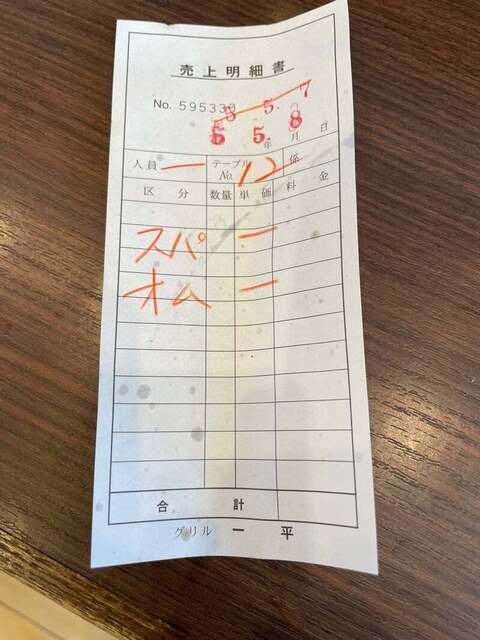 売上明細書
No. 595330
8 5. 7
5 5. 8
年 月 日
人員 一 テーブルNo. 12 係
区 分 数量 単 価 料 金
スパ 一
オム 一
合 計
グリル 一 平